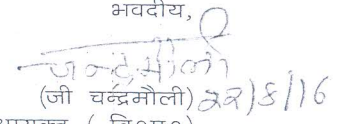 भवदीय,
चन्द्रमौली
(जी चन्द्रमौली) 22/8/16